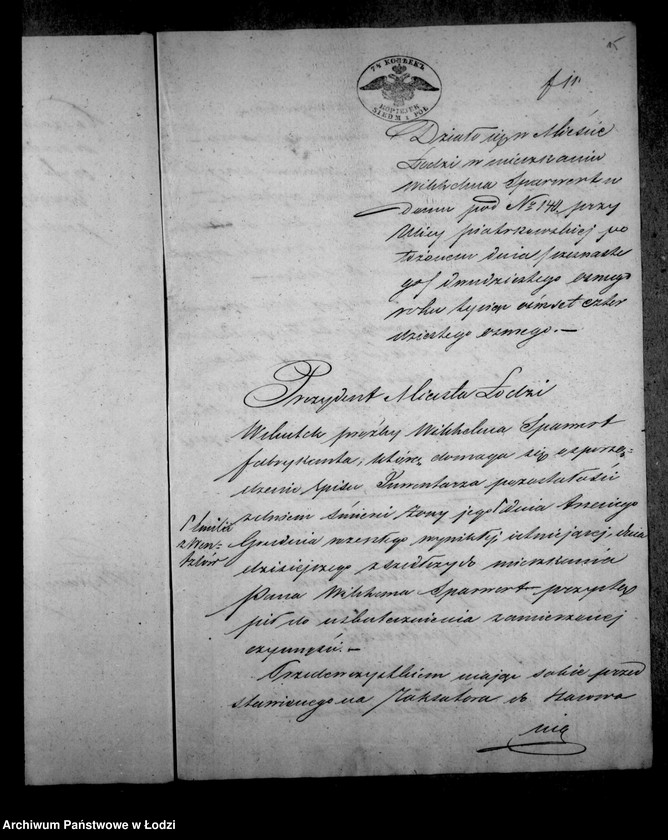 7½ KOПѢEKЪ
KOPIEJEK
SIEDM I PÓŁ
Działo się w Mieście
Łodzi w mieszkaniu
Wilhelma Sparwert w
domu pod № 140 przy
Ulicy Piotrkowskiej po
łożonem dnia szesnaste
go/ dwudziestego osmego
roku tysiąc ośmset czter
dziestego osmego.—
Prezydent Miasta Łodzi
W skutek prośby Wilhelma Sparwert
fabrykanta, który domaga się
dzenie spisu Inwentarza pozostałości
śmierci żony jego dnia trzeciego
Emilii
z Wen=
tzlów
Grudnia wynikłej istniejącej, dnia
dzisiejszego do mieszkania
Pana Wilhelma Sparwert przystę
pił do uskutecznienia zamierzonej
czynności.—
Przedewszystkiem mając sobie przed
stawionego na Taksatora do
nia
Archiwum Państwowe w Łodzi